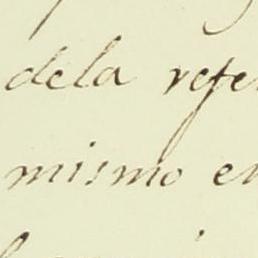 dela refe
mismo en